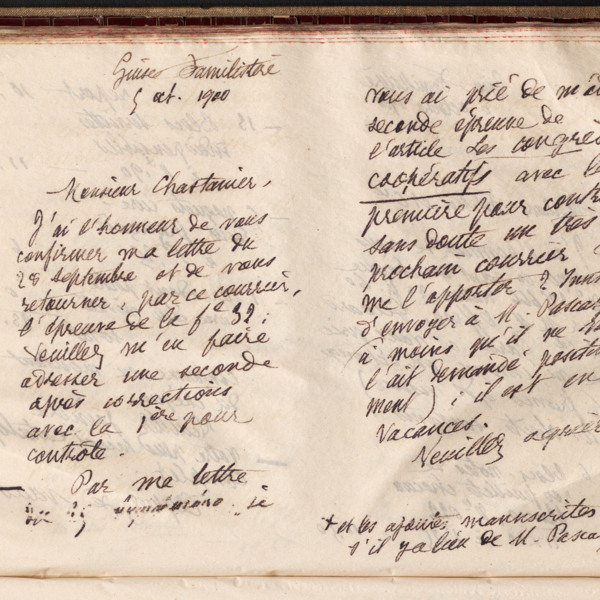 Guise Familistère
5 oct. 1900
Monsieur Chastanier,
J'ai l'honneur de vous
confirmer ma lettre du
28 septembre et de vous
retourner, par ce courrier,
l'épreuve de la fe 32 ;
Veuillez m'en faire
adresser une seconde
après corrections
avec la 1ère pour
contrôle.
Par ma lettre
du numéro je
vous ai prié de m'a
seconde épreuve de
l'article Les congrès
coopératifs avec la
première pour contr
sans doute un très
prochain courrier
me l'apporter ? Inu
d'envoyer à M. Pasca
(à moins qu'il ne
l'ait demandé positi
ment) ; il est en
vacances.
Veuillez agrée
+ et les ajoutés manuscrites
s'il y a lieu de M. Pasca